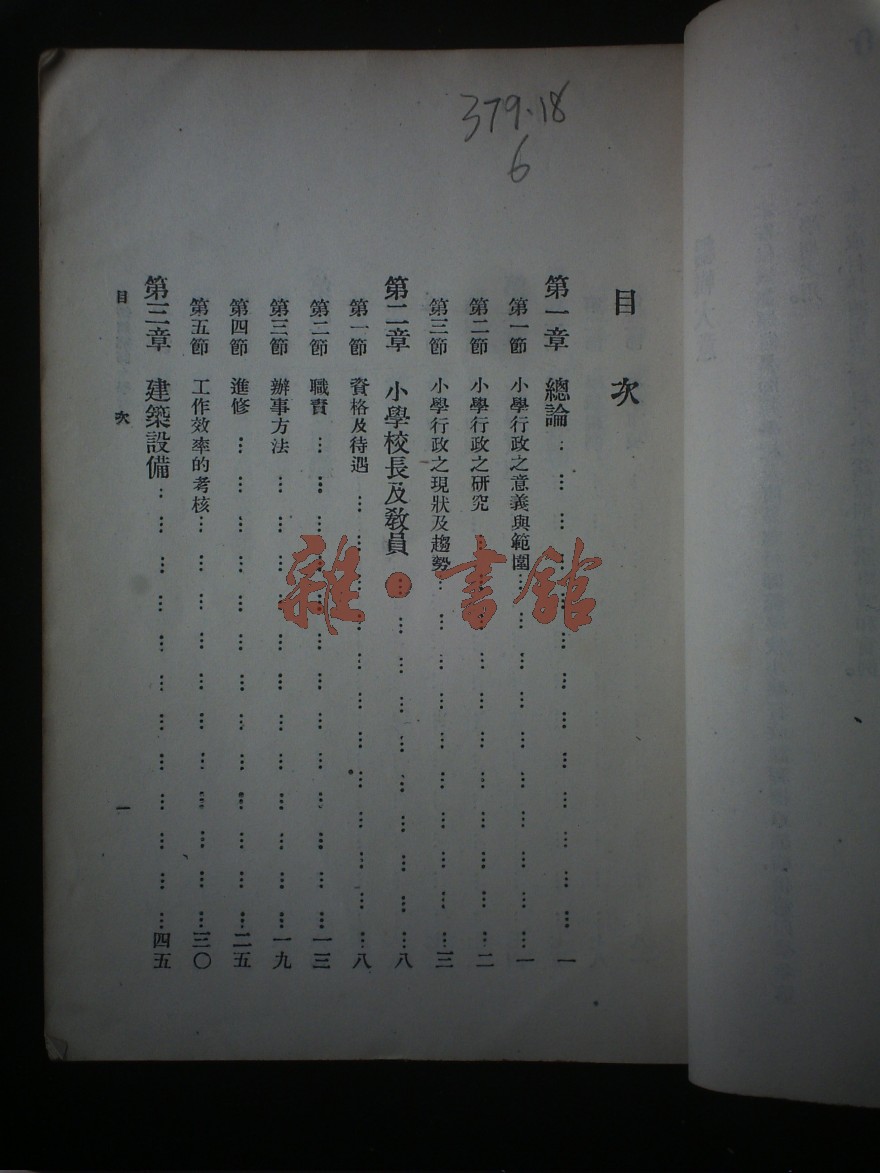 379.18
6
目次
第一章 總論……一
第一節 小學行政之意義與範圍……一
第二節 小學行政之研究……二
第三節 小學行政之現狀及趨勢……三
第二章 小學校長及教員……八
第一節 資格及待遇……八
第二節 職責……一三
第三節 辦事方法……一九
第四節 進修……二五
第五節 工作效率的考核……三〇
第三章 建築設備……四五
目次 一
雜·書館